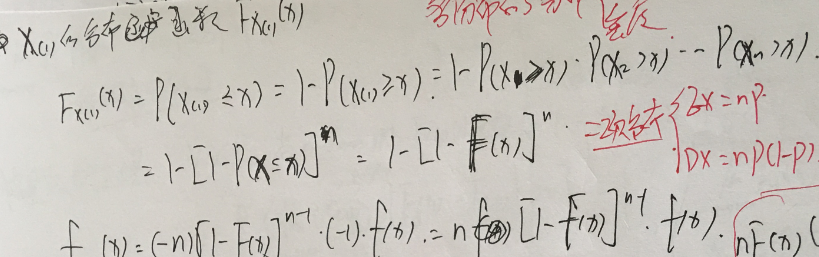 X₍₁₎的分布函数 F_{X₍₁₎}(x)
F_{X₍₁₎}(x) = P(X₍₁₎ ≤ x) = 1-P(X₍₁₎ ≥ x) = 1-P(X₁ > x)·P(X₂ > x)···P(Xₙ > x).
= 1-[1-P(X ≤ x)]ⁿ = 1-[1-F(x)]ⁿ.
二项分布 { EX = np.
DX = np(1-p).
f (x) = (-n)[1-F(x)]ⁿ⁻¹·(-1)·f(x). = n [1-F(x)]ⁿ⁻¹·f(x).
nF(x)(